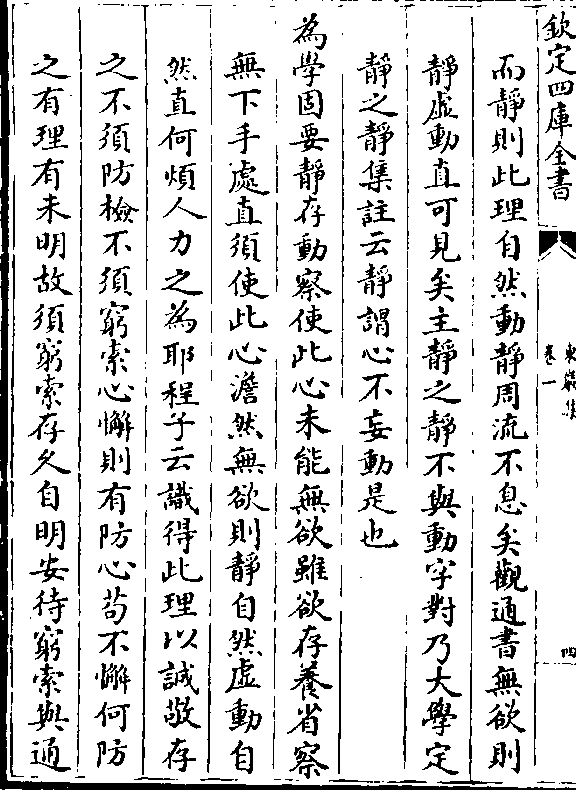 欽定四庫全書
東巖集
卷一
四
而靜則此理自然動靜周流不息矣觀通書無欲則
靜虛動直可見矣主靜之靜不與動字對乃大學定
靜之靜集註云靜謂心不妄動是也
為學固要靜存動察使此心未能無欲雖欲存養省察
無下手處直須使此心澹然無欲則靜自然虛動自
然直何煩人力之為耶程子云識得此理以誠敬存
之不須防檢不須窮索心懈則有防心苟不懈何防
之有理有未明故須窮索存久自明安待窮索與通